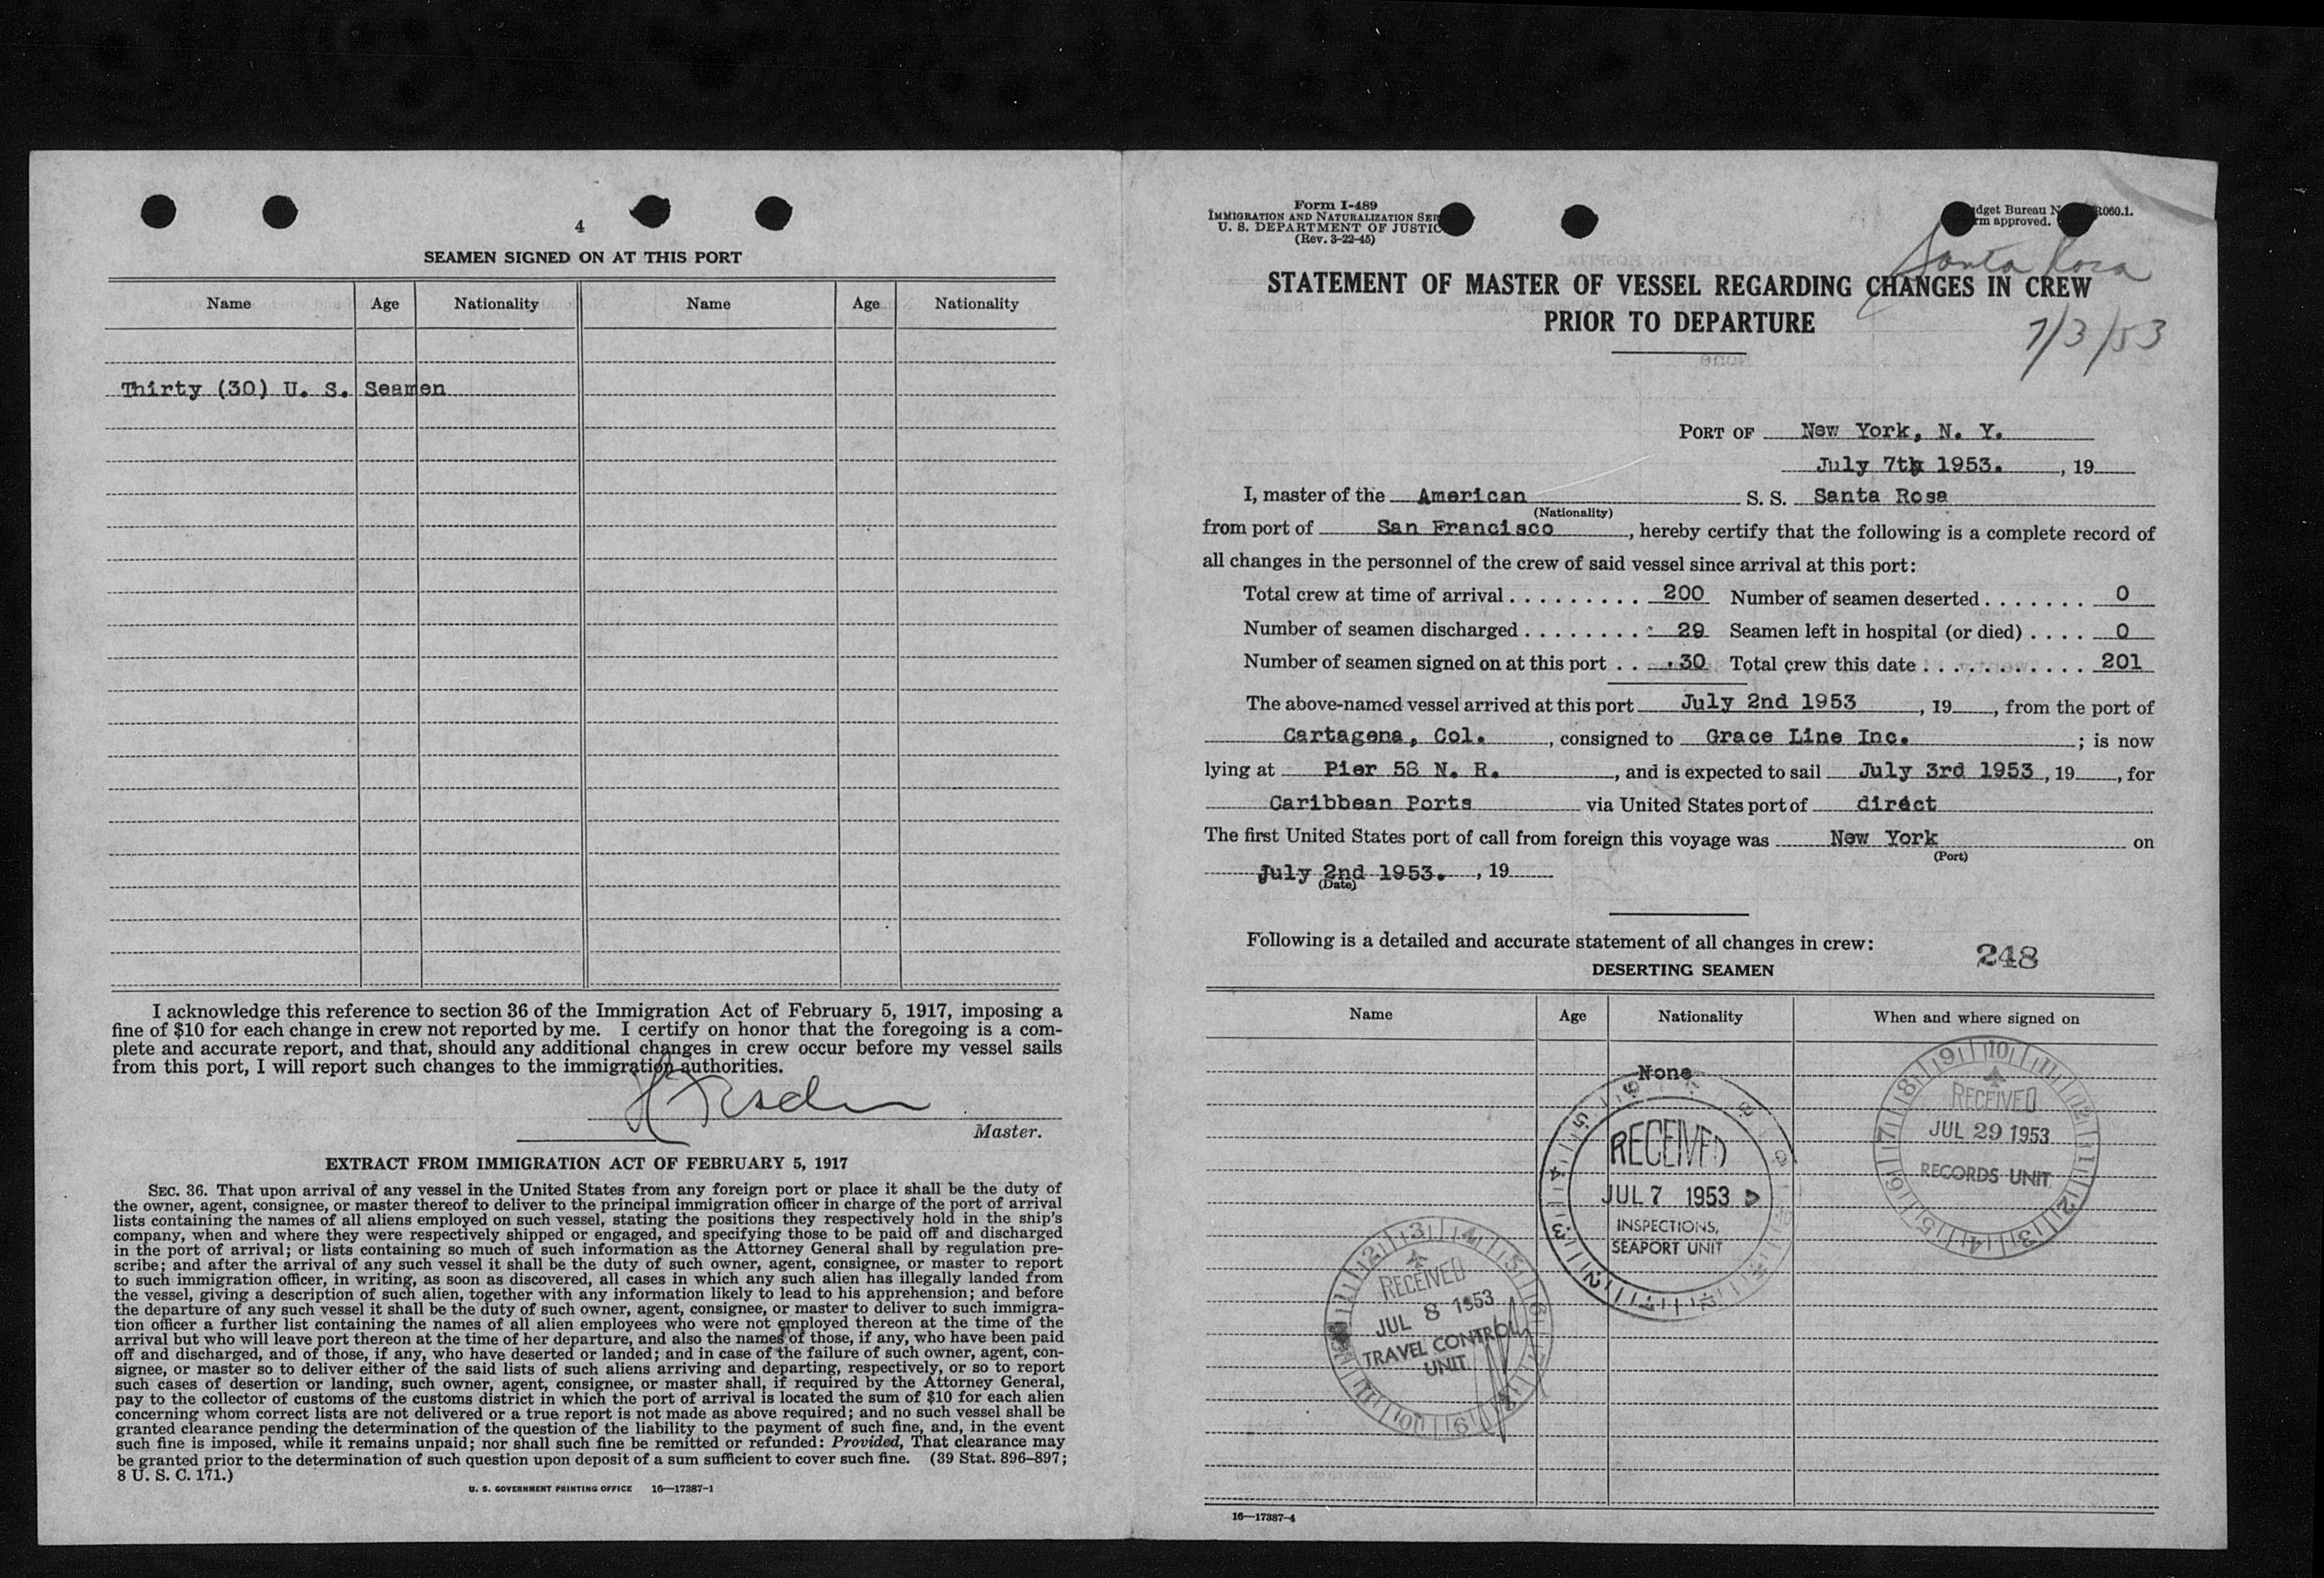 4
SEAMEN SIGNED ON AT THIS PORT
Name Age Nationality Name Age Nationality
Thirty (30) U. S. Seamen
I acknowledge this reference to section 36 of the Immigration Act of February 5, 1917, imposing a
fine of $10 for each change in crew not reported by me. I certify on honor that the foregoing is a com-
plete and accurate report, and that, should any additional changes in crew occur before my vessel sails
from this port, I will report such changes to the immigration authorities.
Master.
EXTRACT FROM IMMIGRATION ACT OF FEBRUARY 5, 1917
SEC. 36. That upon arrival of any vessel in the United States from any foreign port or place it shall be the duty of
the owner, agent, consignee, or master thereof to deliver to the principal immigration officer in charge of the port of arrival
lists containing the names of all aliens employed on such vessel, stating the positions they respectively hold in the ship's
company, when and where they were respectively shipped or engaged, and specifying those to be paid off and discharged
in the port of arrival; or lists containing so much of such information as the Attorney General shall by regulation pre-
scribe; and after the arrival of any such vessel it shall be the duty of such owner, agent, consignee, or master to report
to such immigration officer, in writing, as soon as discovered, all cases in which any such alien has illegally landed from
the vessel, giving a description of such alien, together with any information likely to lead to his apprehension; and before
the departure of any such vessel it shall be the duty of such owner, agent, consignee, or master to deliver to such immigra-
tion officer a further list containing the names of all alien employees who were not employed thereon at the time of the
arrival but who will leave port thereon at the time of her departure, and also the names of those, if any, who have been paid
off and discharged, and of those, if any, who have deserted or landed; and in case of the failure of such owner, agent, con-
signee, or master so to deliver either of the said lists of such aliens arriving and departing, respectively, or so to report
such cases of desertion or landing, such owner, agent, consignee, or master shall, if required by the Attorney General,
pay to the collector of customs of the customs district in which the port of arrival is located the sum of $10 for each alien
concerning whom correct lists are not delivered or a true report is not made as above required; and no such vessel shall be
granted clearance pending the determination of the question of the liability to the payment of such fine, and, in the event
such fine is imposed, while it remains unpaid; nor shall such fine be remitted or refunded: Provided, That clearance may
be granted prior to the determination of such question upon deposit of a sum sufficient to cover such fine. (39 Stat. 896–897;
8 U. S. C. 171.)
U. S. GOVERNMENT PRINTING OFFICE 16—17387-1
Form I-489
IMMIGRATION AND NATURALIZATION
U. S. DEPARTMENT OF
(Rev. 3-22-45)
Bureau
approved.
Santa Rosa
STATEMENT OF MASTER OF VESSEL REGARDING CHANGES IN CREW
PRIOR TO DEPARTURE
7/3/53
PORT OF New York, N. Y.
July 7th 1953. , 19
I, master of the American S. S. Santa Rosa
(Nationality)
from port of San Francisco, hereby certify that the following is a complete record of
all changes in the personnel of the crew of said vessel since arrival at this port:
Total crew at time of arrival 200 Number of seamen deserted 0
Number of seamen discharged 29 Seamen left in hospital (or died) 0
Number of seamen signed on at this port 30 Total crew this date 201
The above-named vessel arrived at this port July 2nd 1953, 19, from the port of
Cartagena, Col., consigned to Grace Line Inc. ; is now
lying at Pier 58 N. R., and is expected to sail July 3rd 1953, 19, for
Caribbean Ports via United States port of direct
The first United States port of call from foreign this voyage was New York on
(Port)
July 2nd 1953. , 19
(Date)
Following is a detailed and accurate statement of all changes in crew:
248
DESERTING SEAMEN
Name Age Nationality When and where signed on
None
RECEIVED
JUL 29 1953
RECORDS UNIT
RECEIVED
JUL 7 1953
INSPECTIONS,
SEAPORT UNIT
RECEIVED
JUL 8 1953
TRAVEL CONTROL
UNIT
16—17387-4